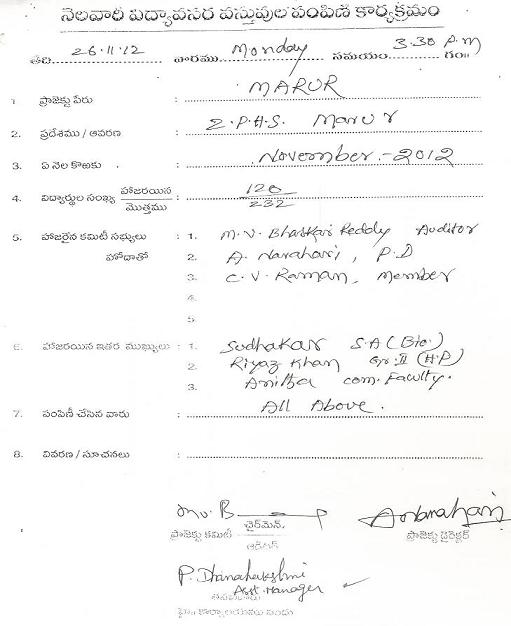 నెలవారీ విద్యావసర వస్తువుల పంపిణి కార్యక్రమం
తేది 26.11.12 వారము Monday సమయం 3.30 P.M గం॥
1 ప్రాజెక్టు పేరు : MARUR
2. ప్రదేశము / ఆవరణ : Z.P.H.S. Marur
3. ఏ నెల కొఱకు : November.-2012
4. విద్యార్థుల సంఖ్య హాజరయిన : 120
మొత్తము 232
5. హాజరైన కమిటీ సభ్యులు : 1. M.V. Bhaskar Reddy Auditor
హోదాతో 2. A. Narahari, P.D
3. C.V. Raman, Member
4.
5.
6. హాజరయిన ఇతర ముఖ్యులు : 1. Sudhakar S.A (Bio.)
2. Riyaz Khan Gr:II (H.P)
3. Anitha com. Faculty.
7. పంపిణీ చేసిన వారు : All Above.
8. వివరణ / సూచనలు :
చైర్‌మెన్,
ప్రాజెక్టు కమిటీ ప్రాజెక్టు డైరెక్టర్
P. Dhanalakshmi
Asst. Manager